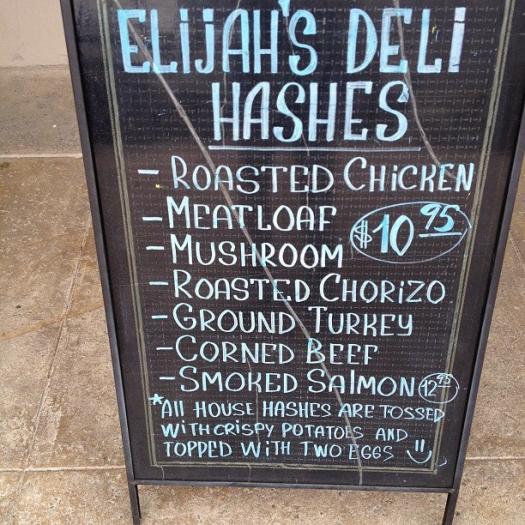 ELIJAH'S DELI
HASHES
- ROASTED CHICKEN
- MEATLOAF
$10 95
- MUSHROOM
- ROASTED CHORIZO
- GROUND TURKEY
- CORNED BEEF
- SMOKED SALMON 12 95
*All HOUSE HASHES ARE TOSSED
WITH CRISPY POTATOES AND
TOPPED WITH TWO EGGS